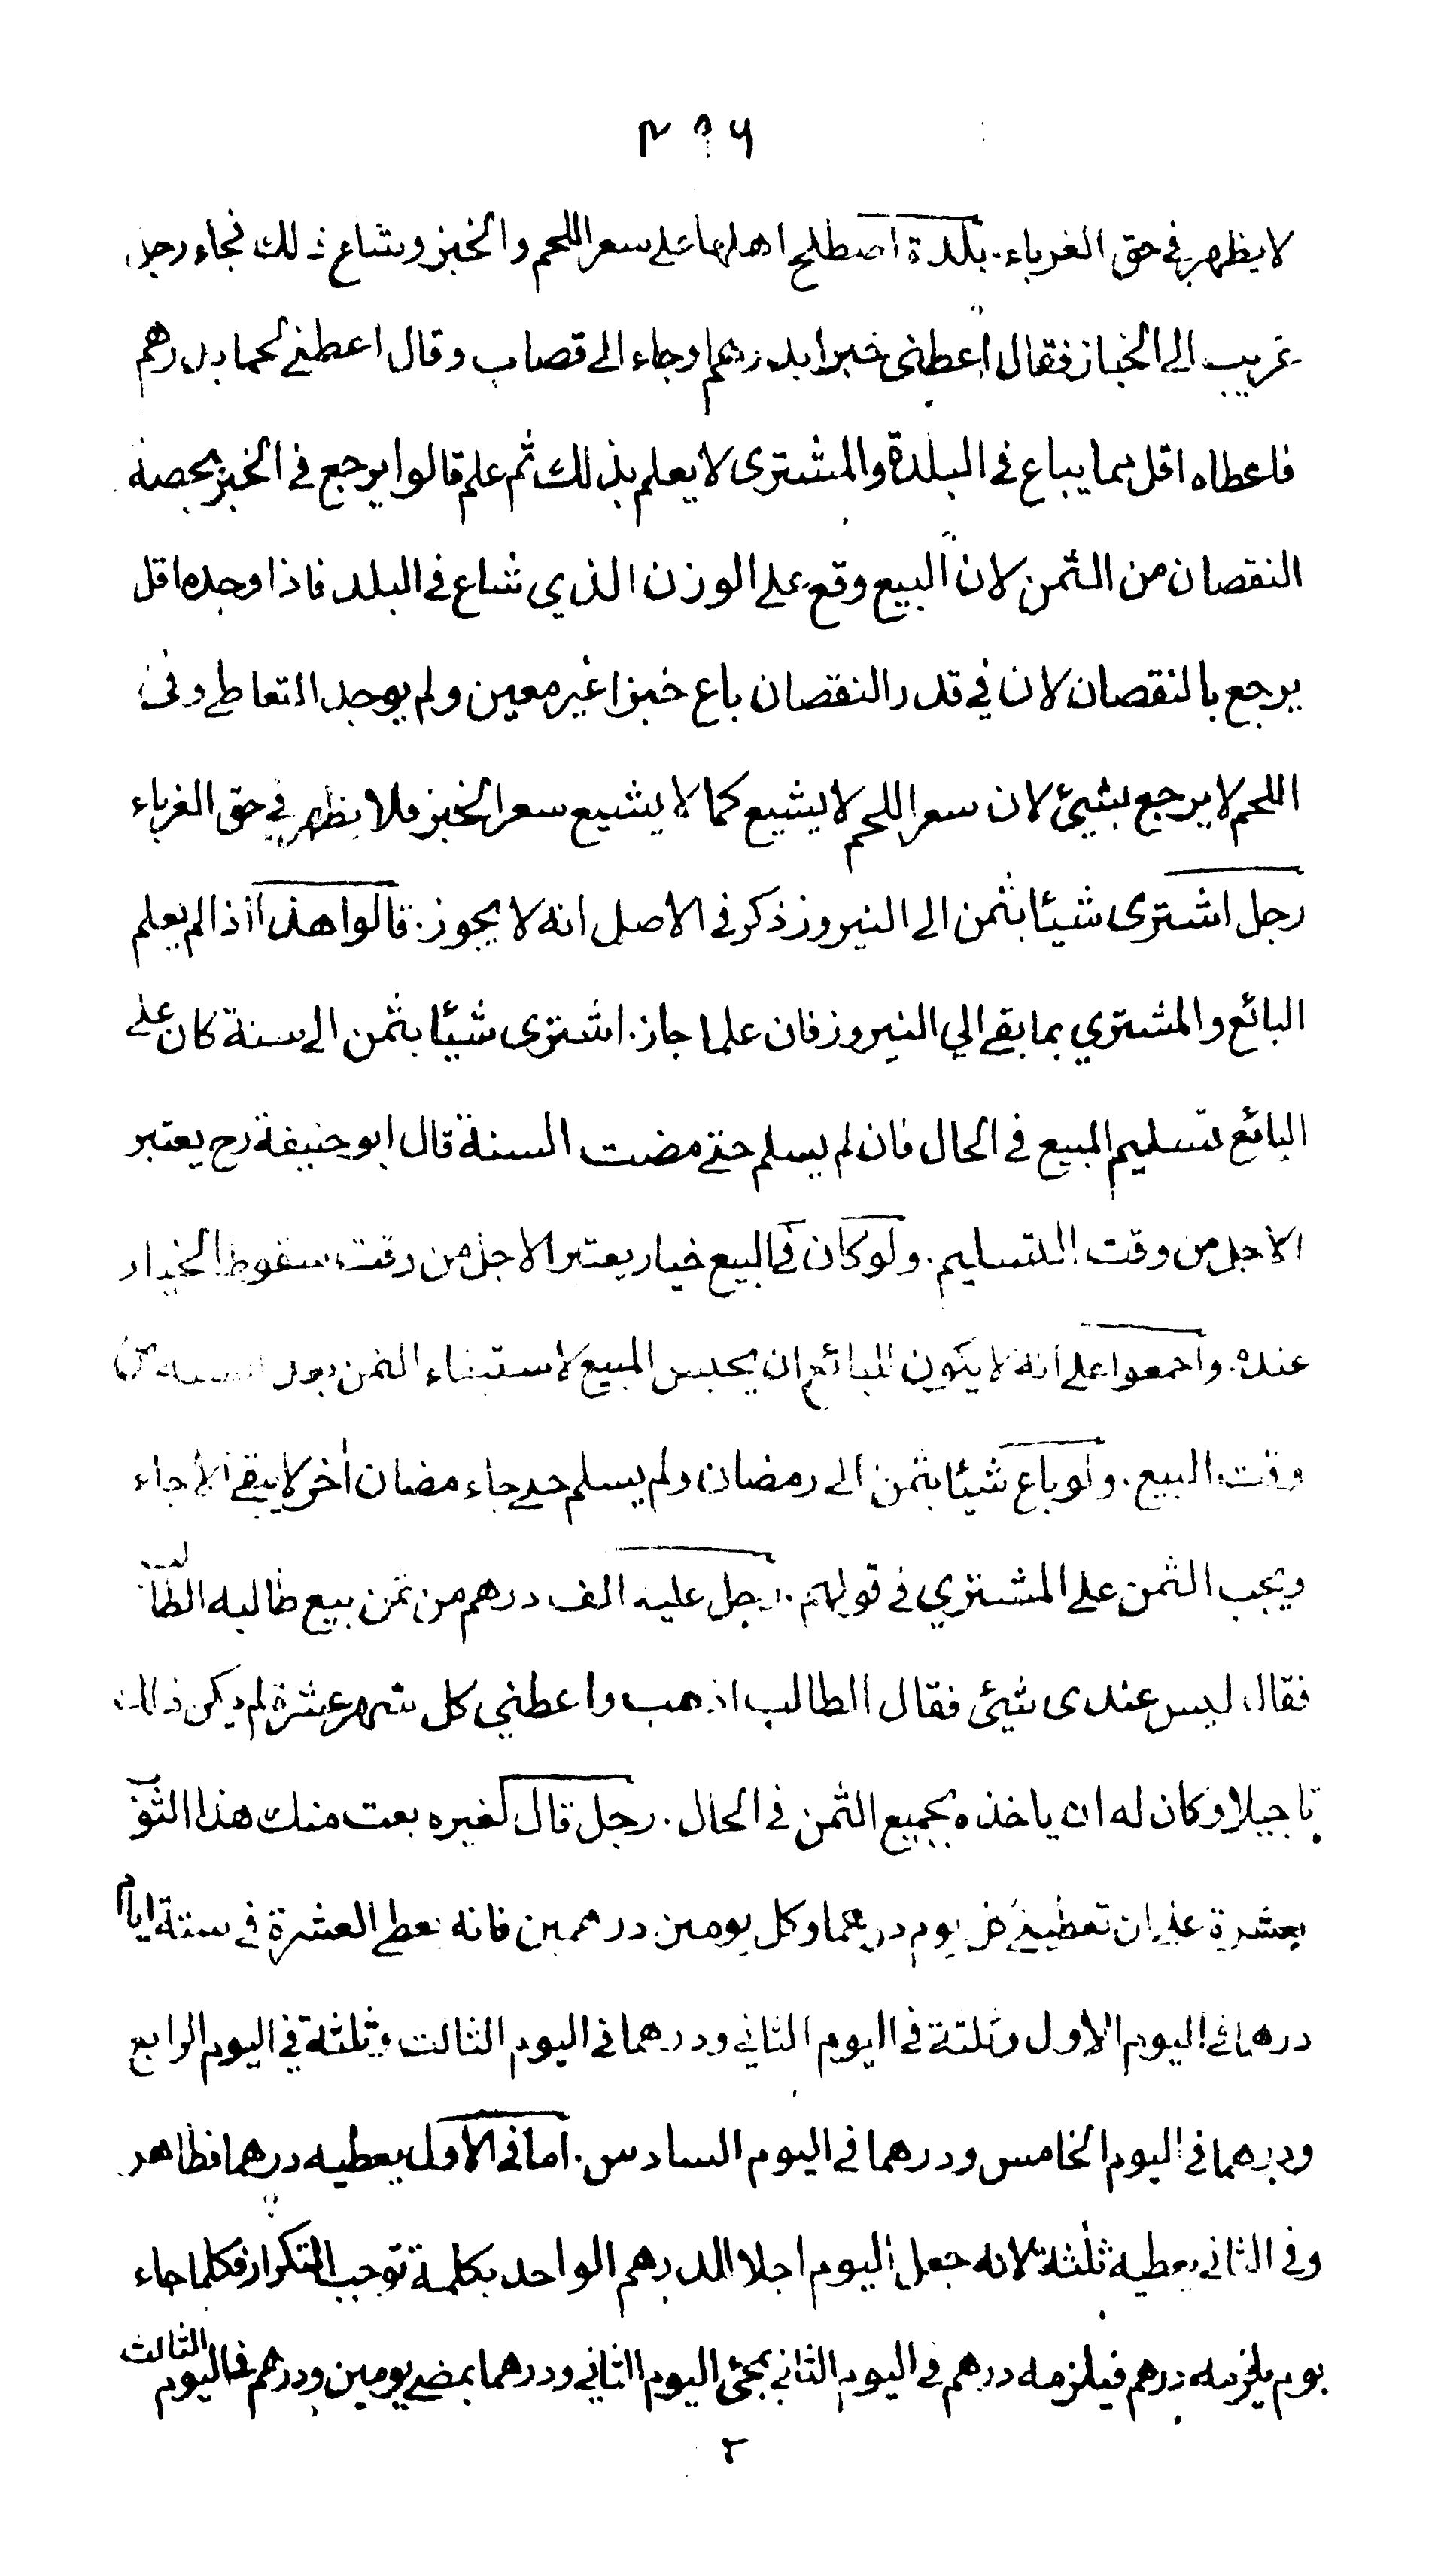 ۳۹۶
لا يظهر في حق الغرباء . بلدة اصطلح اهلها على سعر اللحم والخبز وشاع ذلك فجاء رجل
غريب الى الخباز فقال اعطنى خبزا بدرهم وجاء الى قصاب وقال اعطنى لحما بدرهم
فاعطاه اقل مما يباع فى البلدة والمشترى لا يعلم بذلك ثم علم قالوا يرجع فى الخبز بحصة
النقصان من الثمن لان البيع وقع على الوزن الذي شاع فى البلد فاذا وجده اقل
يرجع بالنقصان لان في قدر النقصان باع خبزا غير معين ولم يوجد التعاطى وفى
اللحم لا يرجع بشيئ لان سعر اللحم لا يشيع كما لا يشيع سعر الخبز فلا يظهر في حق الغرباء
رجل اشترى شيئا بثمن الى النيروز ذكر فى الاصل انه لا يجوز . قالوا هذا اذا لم يعلم
البائع والمشتري بما بقى الي النيروز فان علما جاز . اشترى شيئا بثمن الى سنة كان على
البائع تسليم المبيع فى الحال فان لم يسلم حتى مضت السنة قال ابو حنيفة رح يعتبر
الاجل من وقت التسليم . ولو كان فى البيع خيار يعتبر الاجل من وقت سقوط الخيار
عنده . واجمعوا على انه لا يكون للبائع ان يحبس المبيع لاستيفاء الثمن بعد السنة من
وقت البيع . ولو باع شيئا بثمن الى رمضان ولم يسلم حتى جاء مضان اخر لا يبقى الاجاء
ويجب الثمن على المشتري فى قولهم . رجل عليه الف درهم من ثمن بيع طالبه الطالب
فقال ليس عندى شيئ فقال الطالب اذهب واعطني كل شهر عشرة لم يكن ذلك
تاجيلا وكان له ان ياخذه بجميع الثمن فى الحال . رجل قال لغيره بعت منك هذا الثوب
بعشرة على ان تعطينى كل يوم درهما وكل يومين درهمين فانه يعطى العشرة فى ستة ايام
درهما فى اليوم الاول وثلثة فى اليوم الثاني ودرهما فى اليوم الثالث وثلثة في اليوم الرابع
ودرهما فى اليوم الخامس ودرهما فى اليوم السادس . اما فى الاول يعطيه درهما فظاهر
وفى الثانى يعطيه ثلثة لانه جعل اليوم اجلا للدرهم الواحد بكلمة توجب التكرار فكلما جاء
يوم يلزمه درهم فيلزمه درهم فى اليوم الثانى بمجئ اليوم الثاني ودرهما بمضى يومين ودرهم فى اليوم الثالث
٢